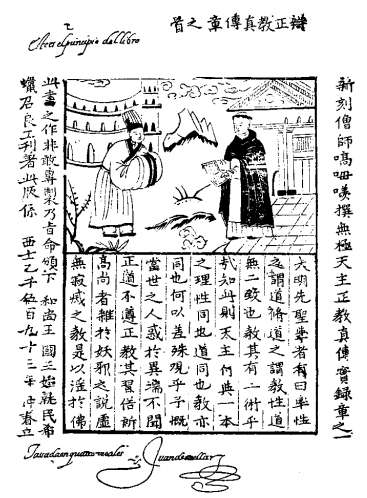 辯正教真傳章之首
el principio del libro
新刻僧師嗃呣撰無極天主正教真傳實錄章之一
大明先聖學者有曰率性
之謂道脩道之謂教性道
無二致也教其有二術乎
哉知此則天主付與一本
之理性同也道同也教亦
同也何以差殊觀乎慨
當世之人惑於異端不聞
正道不遵正教其習俗所
高尚者雜於妖邪之說虛
無寂滅之教是以淫於佛
此書之作非敢專製乃旨命頒下和尚王國王始就民希
召良工刊著此版係西士乙千伍百九十三年仲春立
Tasada en quatro reales
Juan de cuellar